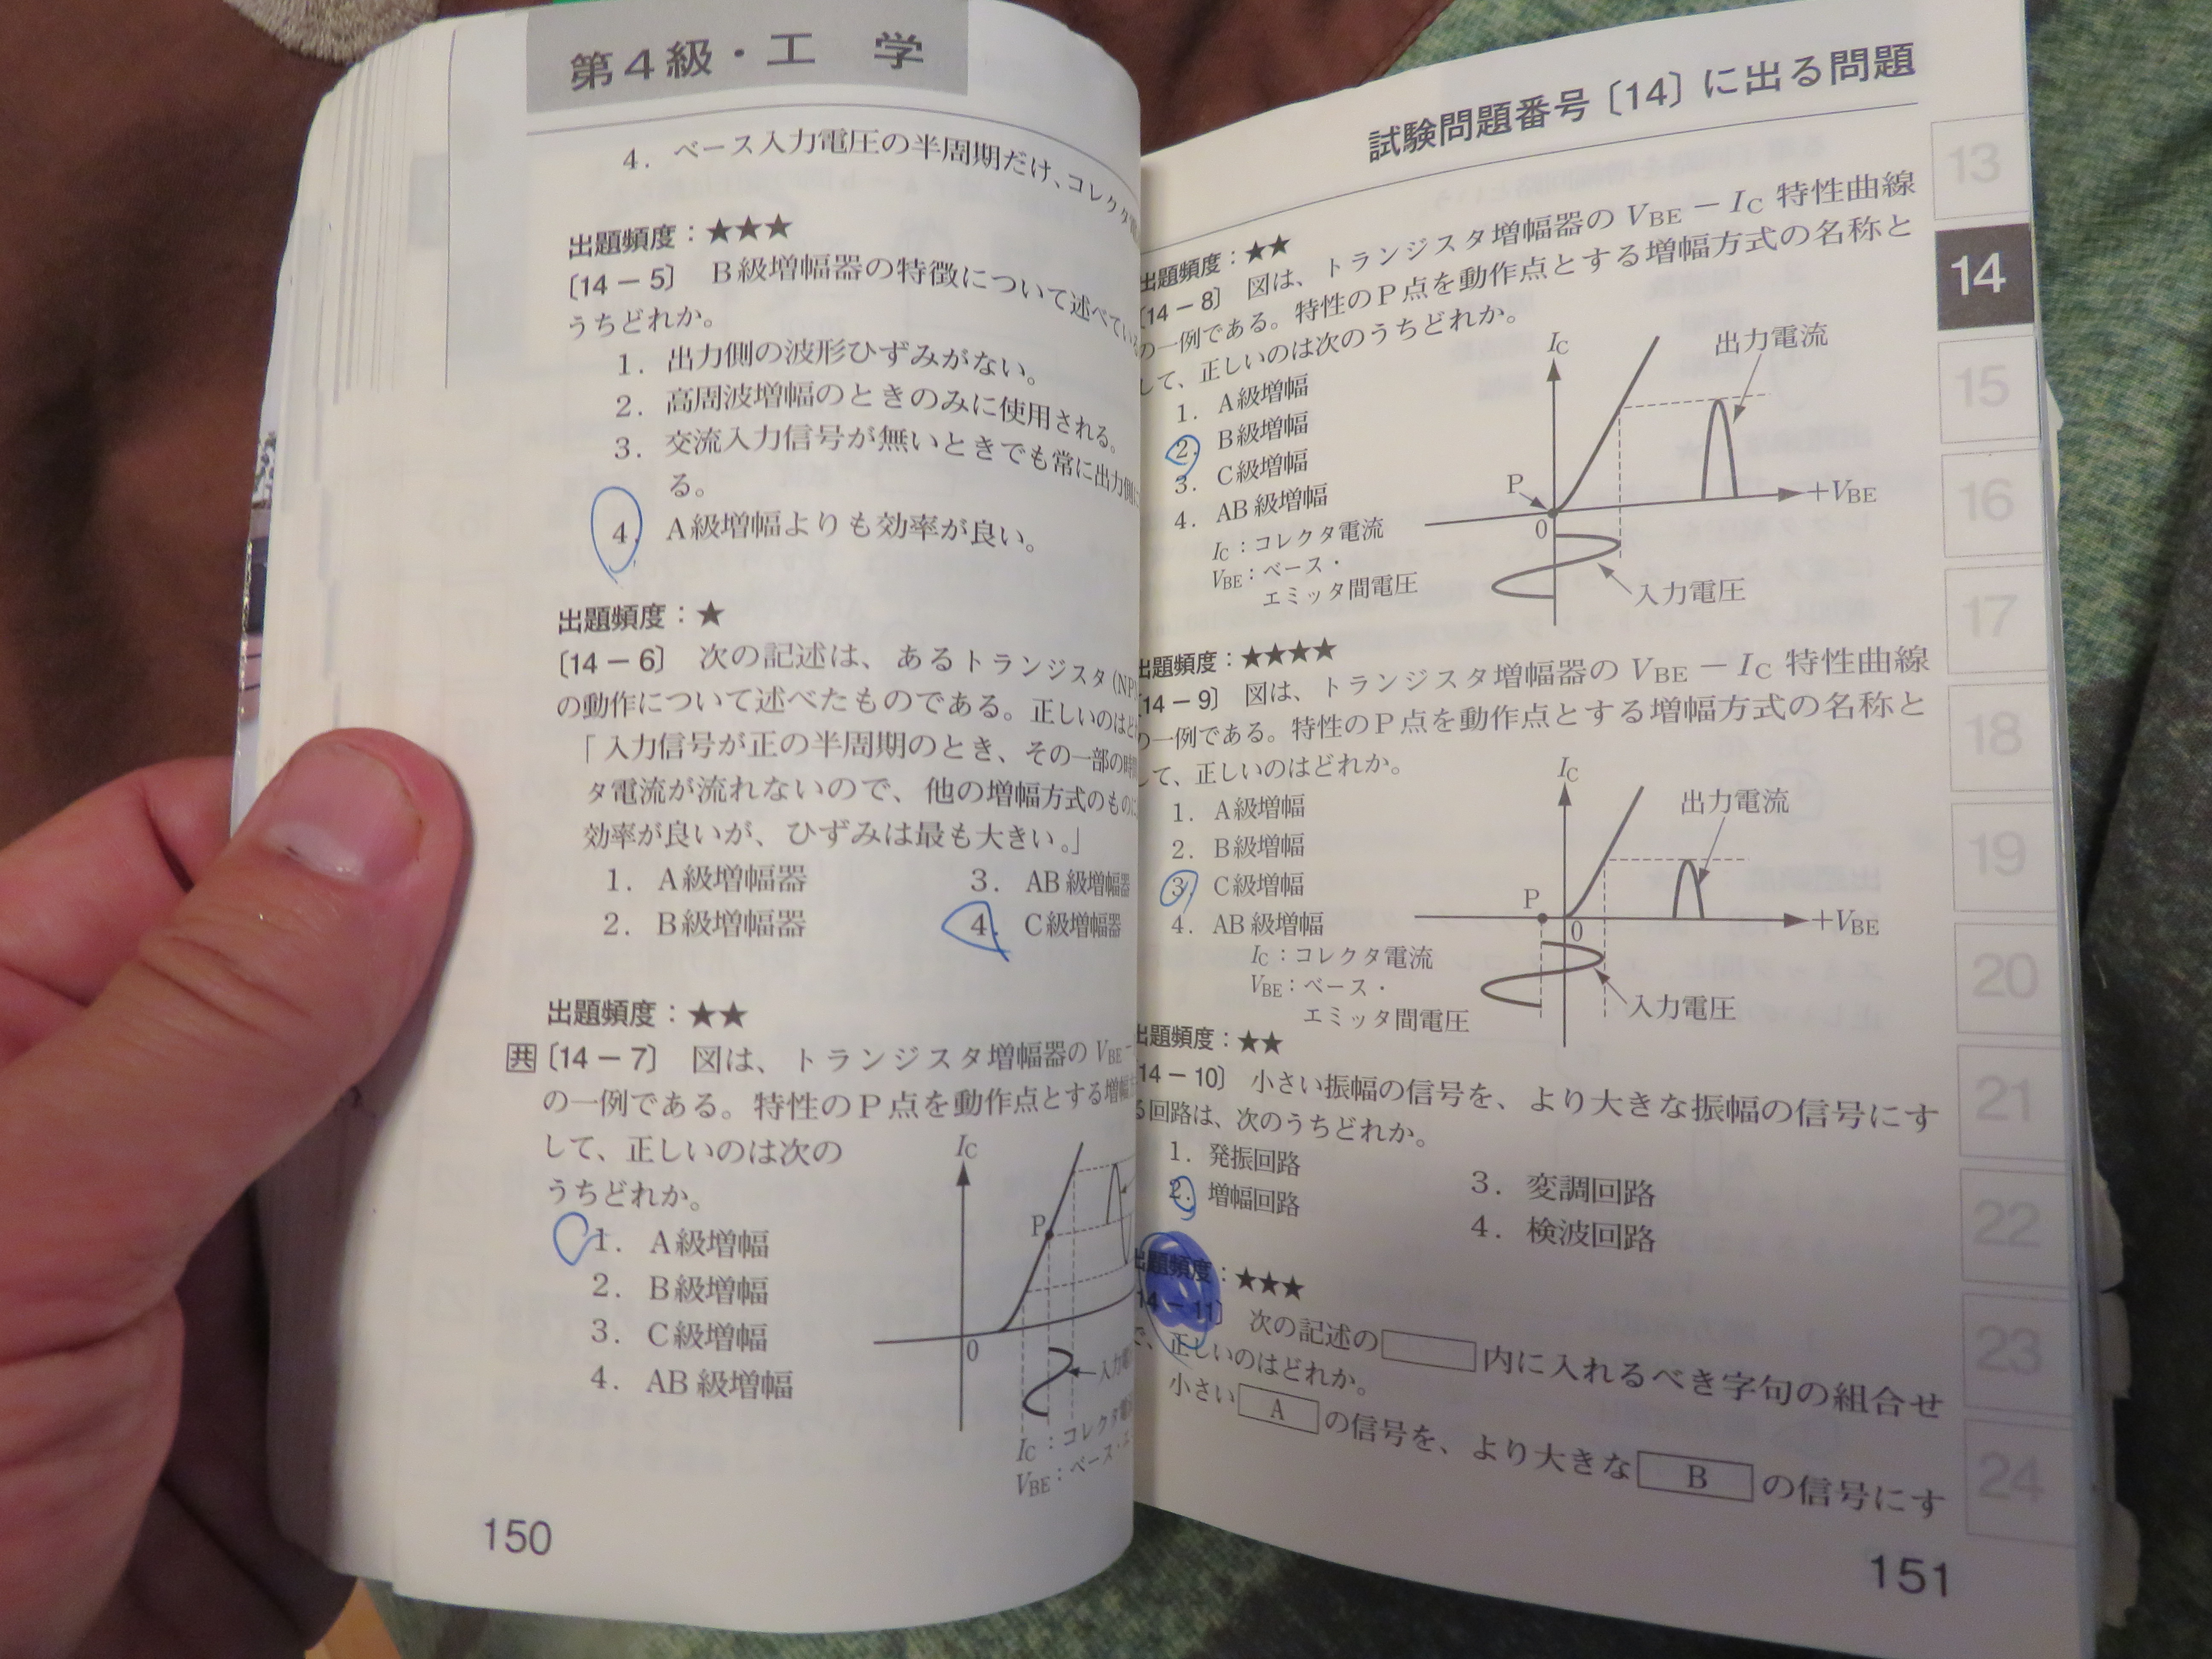 第4級・工 学
4. ベース入力電圧の半周期だけ、コレクタ
出題頻度：★★★
〔14－5〕 B級増幅器の特徴について述べている
うちどれか。
1. 出力側の波形ひずみがない。
2. 高周波増幅のときのみに使用される。
3. 交流入力信号が無いときでも常に出力側に
る。
4. A級増幅よりも効率が良い。
出題頻度：★
〔14－6〕 次の記述は、あるトランジスタ(NP
の動作について述べたものである。正しいのはど
「入力信号が正の半周期のとき、その一部の時間
タ電流が流れないので、他の増幅方式のものに
効率が良いが、ひずみは最も大きい。」
1. A級増幅器 3. AB級増幅器
2. B級増幅器 4. C級増幅器
出題頻度：★★
共〔14－7〕 図は、トランジスタ増幅器のVBE－
の一例である。特性のP点を動作点とする増幅
して、正しいのは次の
うちどれか。
1. A級増幅
2. B級増幅
3. C級増幅
4. AB級増幅
IC
P
0
入力電
IC：コレクタ電
VBE：ベース・エ
150
試験問題番号〔14〕に出る問題
出題頻度：★★
〔14－8〕 図は、トランジスタ増幅器のVBE－IC特性曲線
の一例である。特性のP点を動作点とする増幅方式の名称と
して、正しいのは次のうちどれか。
1. A級増幅
2. B級増幅
3. C級増幅
4. AB級増幅
IC：コレクタ電流
VBE：ベース・
エミッタ間電圧
IC
出力電流
P
0
+VBE
入力電圧
出題頻度：★★★★
〔14－9〕 図は、トランジスタ増幅器のVBE－IC特性曲線
の一例である。特性のP点を動作点とする増幅方式の名称と
して、正しいのはどれか。
1. A級増幅
2. B級増幅
3. C級増幅
4. AB級増幅
IC：コレクタ電流
VBE：ベース・
エミッタ間電圧
IC
出力電流
P
0
+VBE
入力電圧
出題頻度：★★
14－10〕 小さい振幅の信号を、より大きな振幅の信号にす
る回路は、次のうちどれか。
1. 発振回路 3. 変調回路
2. 増幅回路 4. 検波回路
出題頻度：★★★
14－11〕 次の記述の 内に入れるべき字句の組合せ
で、正しいのはどれか。
小さい A の信号を、より大きな B の信号にす
151
13
14
15
16
17
18
19
20
21
22
23
24